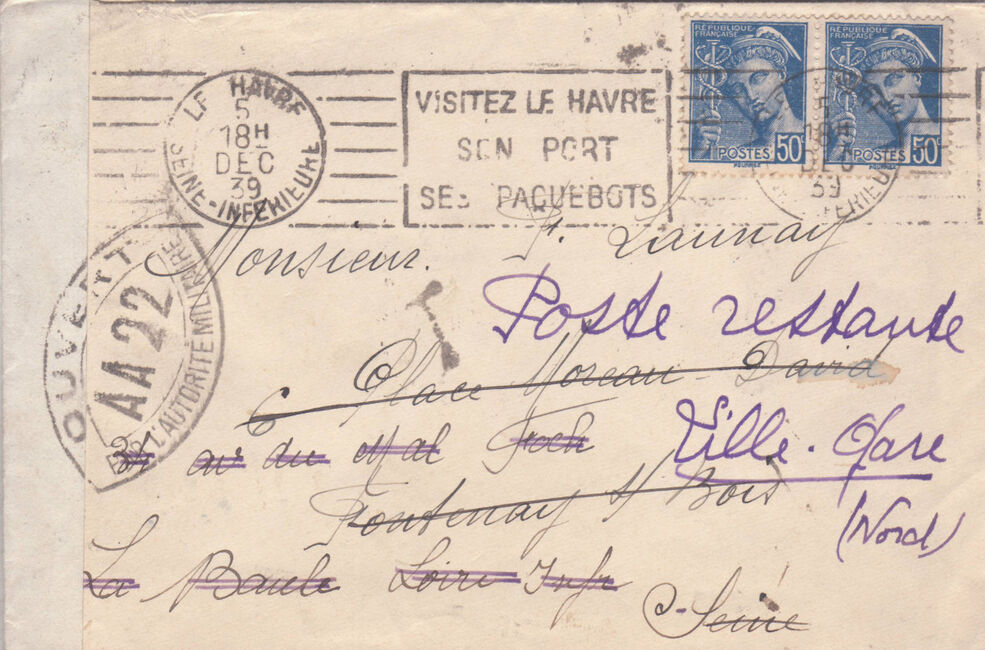 LE HAVRE
5
18H
DEC
39
SEINE-INFERIEURE
VISITEZ LE HAVRE
SON PORT
SES PAQUEBOTS
RÉPUBLIQUE FRANÇAISE
POSTES 50
RÉPUBLIQUE FRANÇAISE
POSTES 50
OUVERT
AA22
PAR L'AUTORITE MILITAIRE
Monsieur. P. Launay
Poste restante
6 Place Moreau-David
31 av du Mal Foch
Lille-Gare
Fontenay s/ Bois
(Nord)
La Baule Loire Infr
Seine